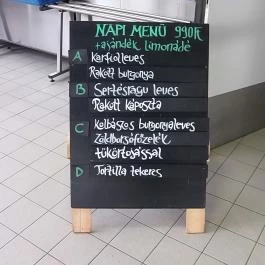 NAPI MENÜ 990Ft
+ajándék limonádé
A Karfiolleves
Rakott burgonya
B Sertésragu leves
Rakott káposzta
C Kolbászos burgonyaleves
Zöldborsófőzelék
tükörtojással
D Tortilla tekercs